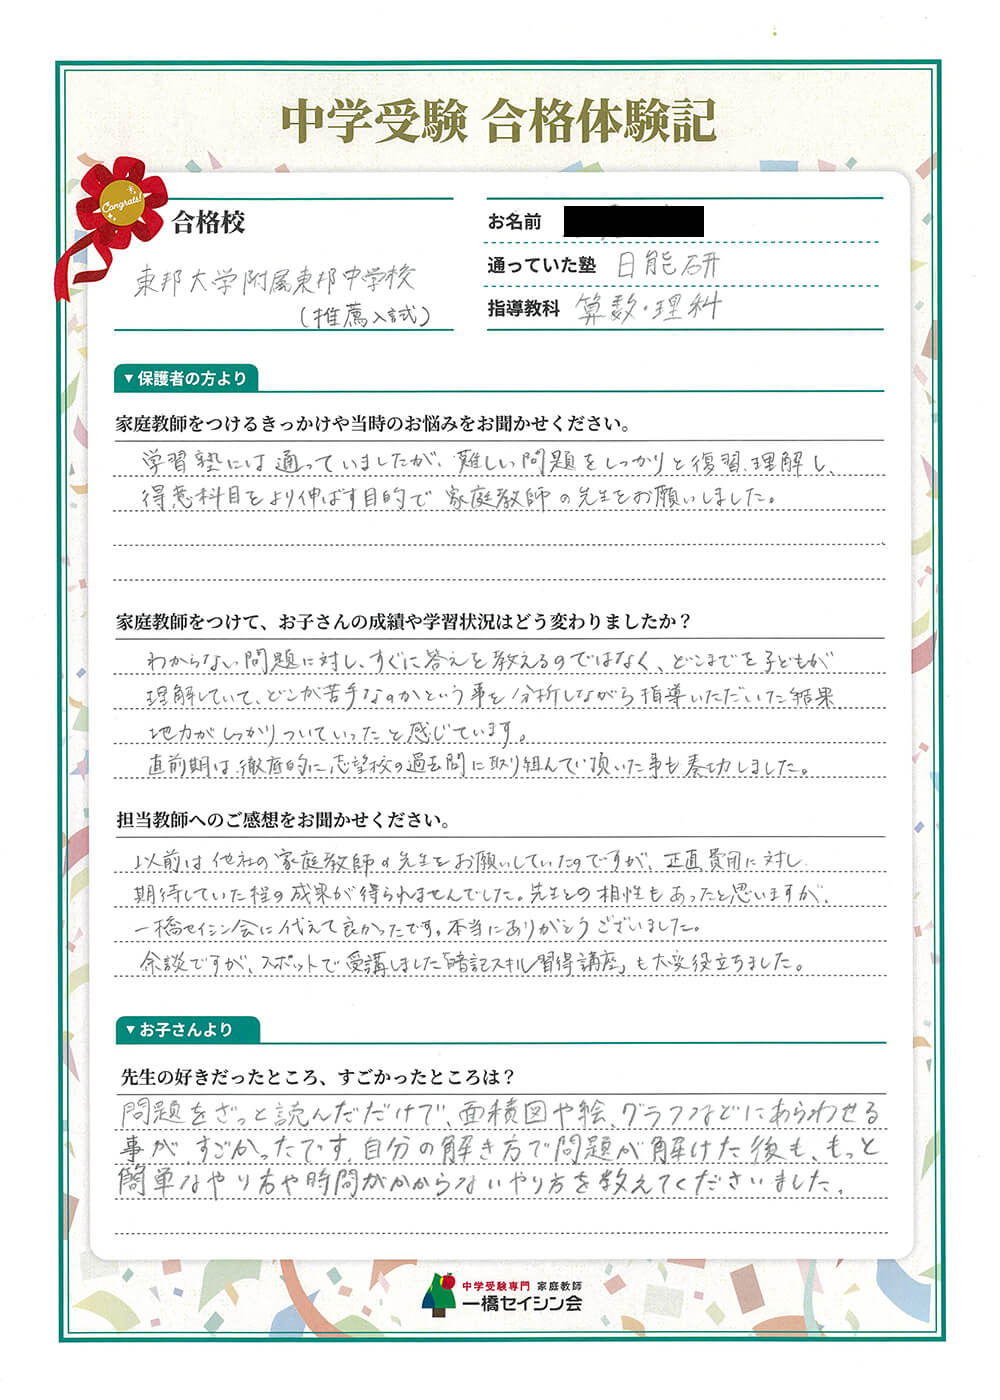 中学受験 合格体験記
Congrats!
合格校
東邦大学附属東邦中学校
(推薦入試)
お名前
通っていた塾 日能研
指導教科 算数・理科
▼保護者の方より
家庭教師をつけるきっかけや当時のお悩みをお聞かせください。
学習塾には通っていましたが、難しい問題をしっかりと復習、理解し、
得意科目をより伸ばす目的で家庭教師の先生をお願いしました。
家庭教師をつけて、お子さんの成績や学習状況はどう変わりましたか？
わからない問題に対し、すぐに答えを教えるのではなく、どこまでを子どもが
理解していて、どこが苦手なのかという事を分析しながら指導いただいた結果
地力がしっかりついていったと感じています。
直前期は、徹底的に志望校の過去問に取り組んでい頂いた事も奏功しました。
担当教師へのご感想をお聞かせください。
以前は他社の家庭教師の先生をお願いしていたのですが、正直費用に対し
期待していた程の成果が得られませんでした。先生との相性もあったと思いますが、
一橋セイシン会に代えて良かったです。本当にありがとうございました。
余談ですが、スポットで受講しました「暗記スキル習得講座」も大変役立ちました。
▼お子さんより
先生の好きだったところ、すごかったところは？
問題をざっと読んだだけで、面積図や絵、グラフなどにあらわせる
事が、すごかったです。自分の解き方で問題が解けた後も、もっと
簡単なやり方や時間がかからないやり方を教えてくださいました。
中学受験専門 家庭教師
一橋セイシン会